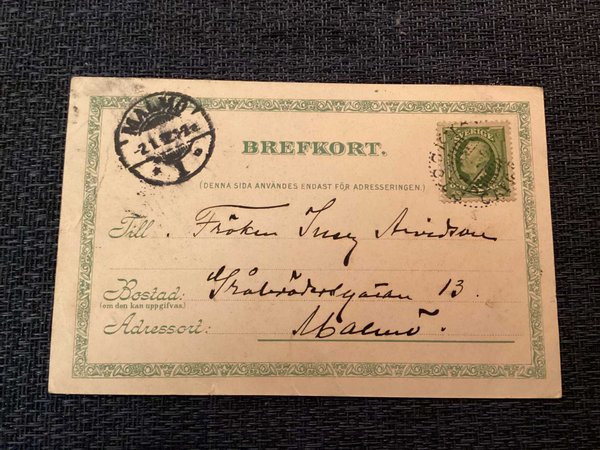 MALMÖ
1
BREFKORT.
SVERIGE
(DENNA SIDA ANVÄNDES ENDAST FÖR ADRESSERINGEN.)
Till Fröken Inez Arvidson
Bostad: Gråbrödersgatan 13.
(om den kan uppgifvas)
Adressort: Malmö.